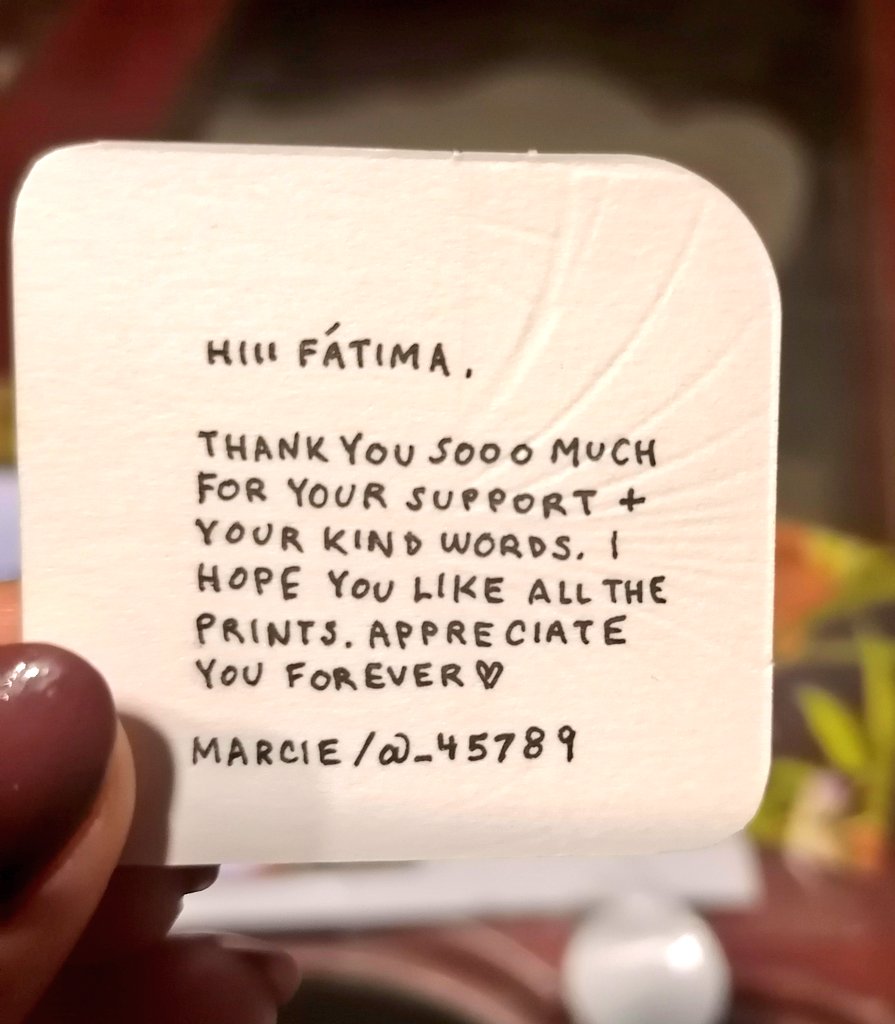 HIII FÁTIMA,
THANK YOU SOOO MUCH
FOR YOUR SUPPORT +
YOUR KIND WORDS. I
HOPE YOU LIKE ALL THE
PRINTS. APPRECIATE
YOU FOREVER♡
MARCIE/@_45789